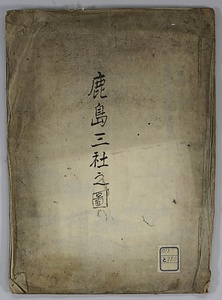 鹿島三社之圖